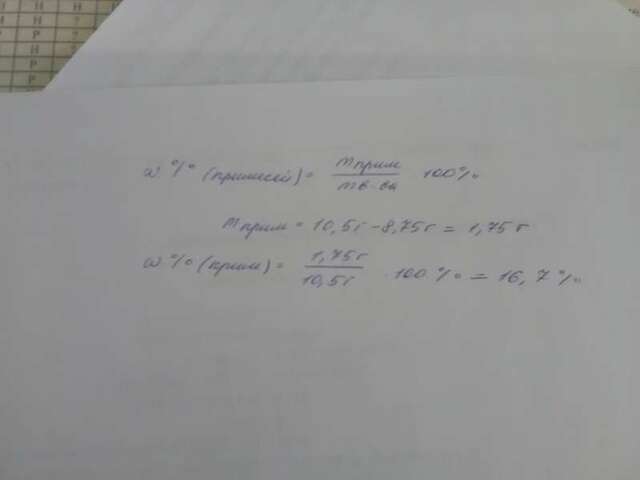 Н Н
Р ?
Н ?
Р Р
Р
ω % (примесей) = mприм / mв-ва 100%
mприм = 10,5г - 8,75г = 1,75г
ω % (прим) = 1,75г / 10,5г · 100% = 16,7%